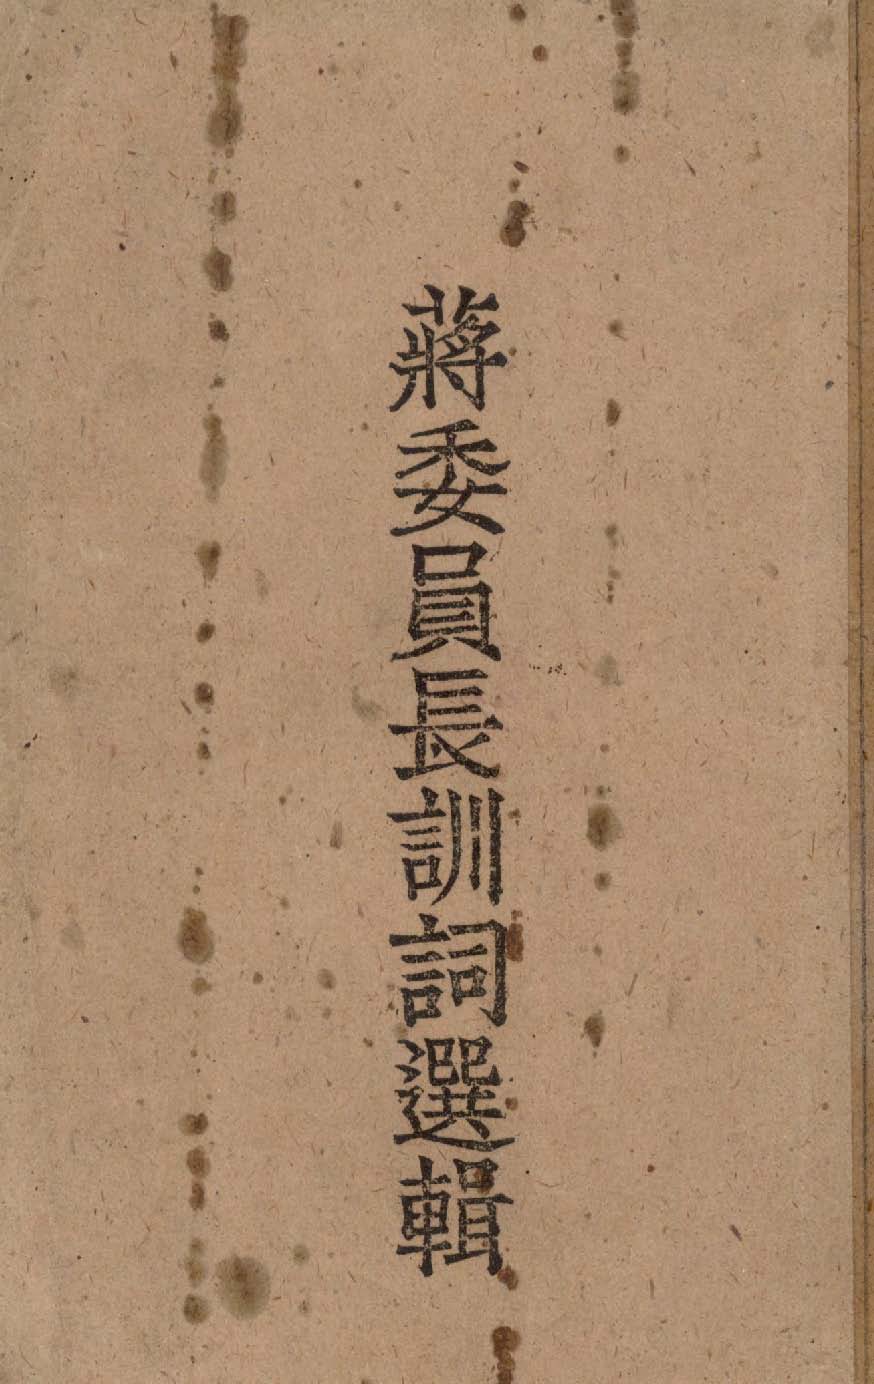 蔣委員長訓詞選輯